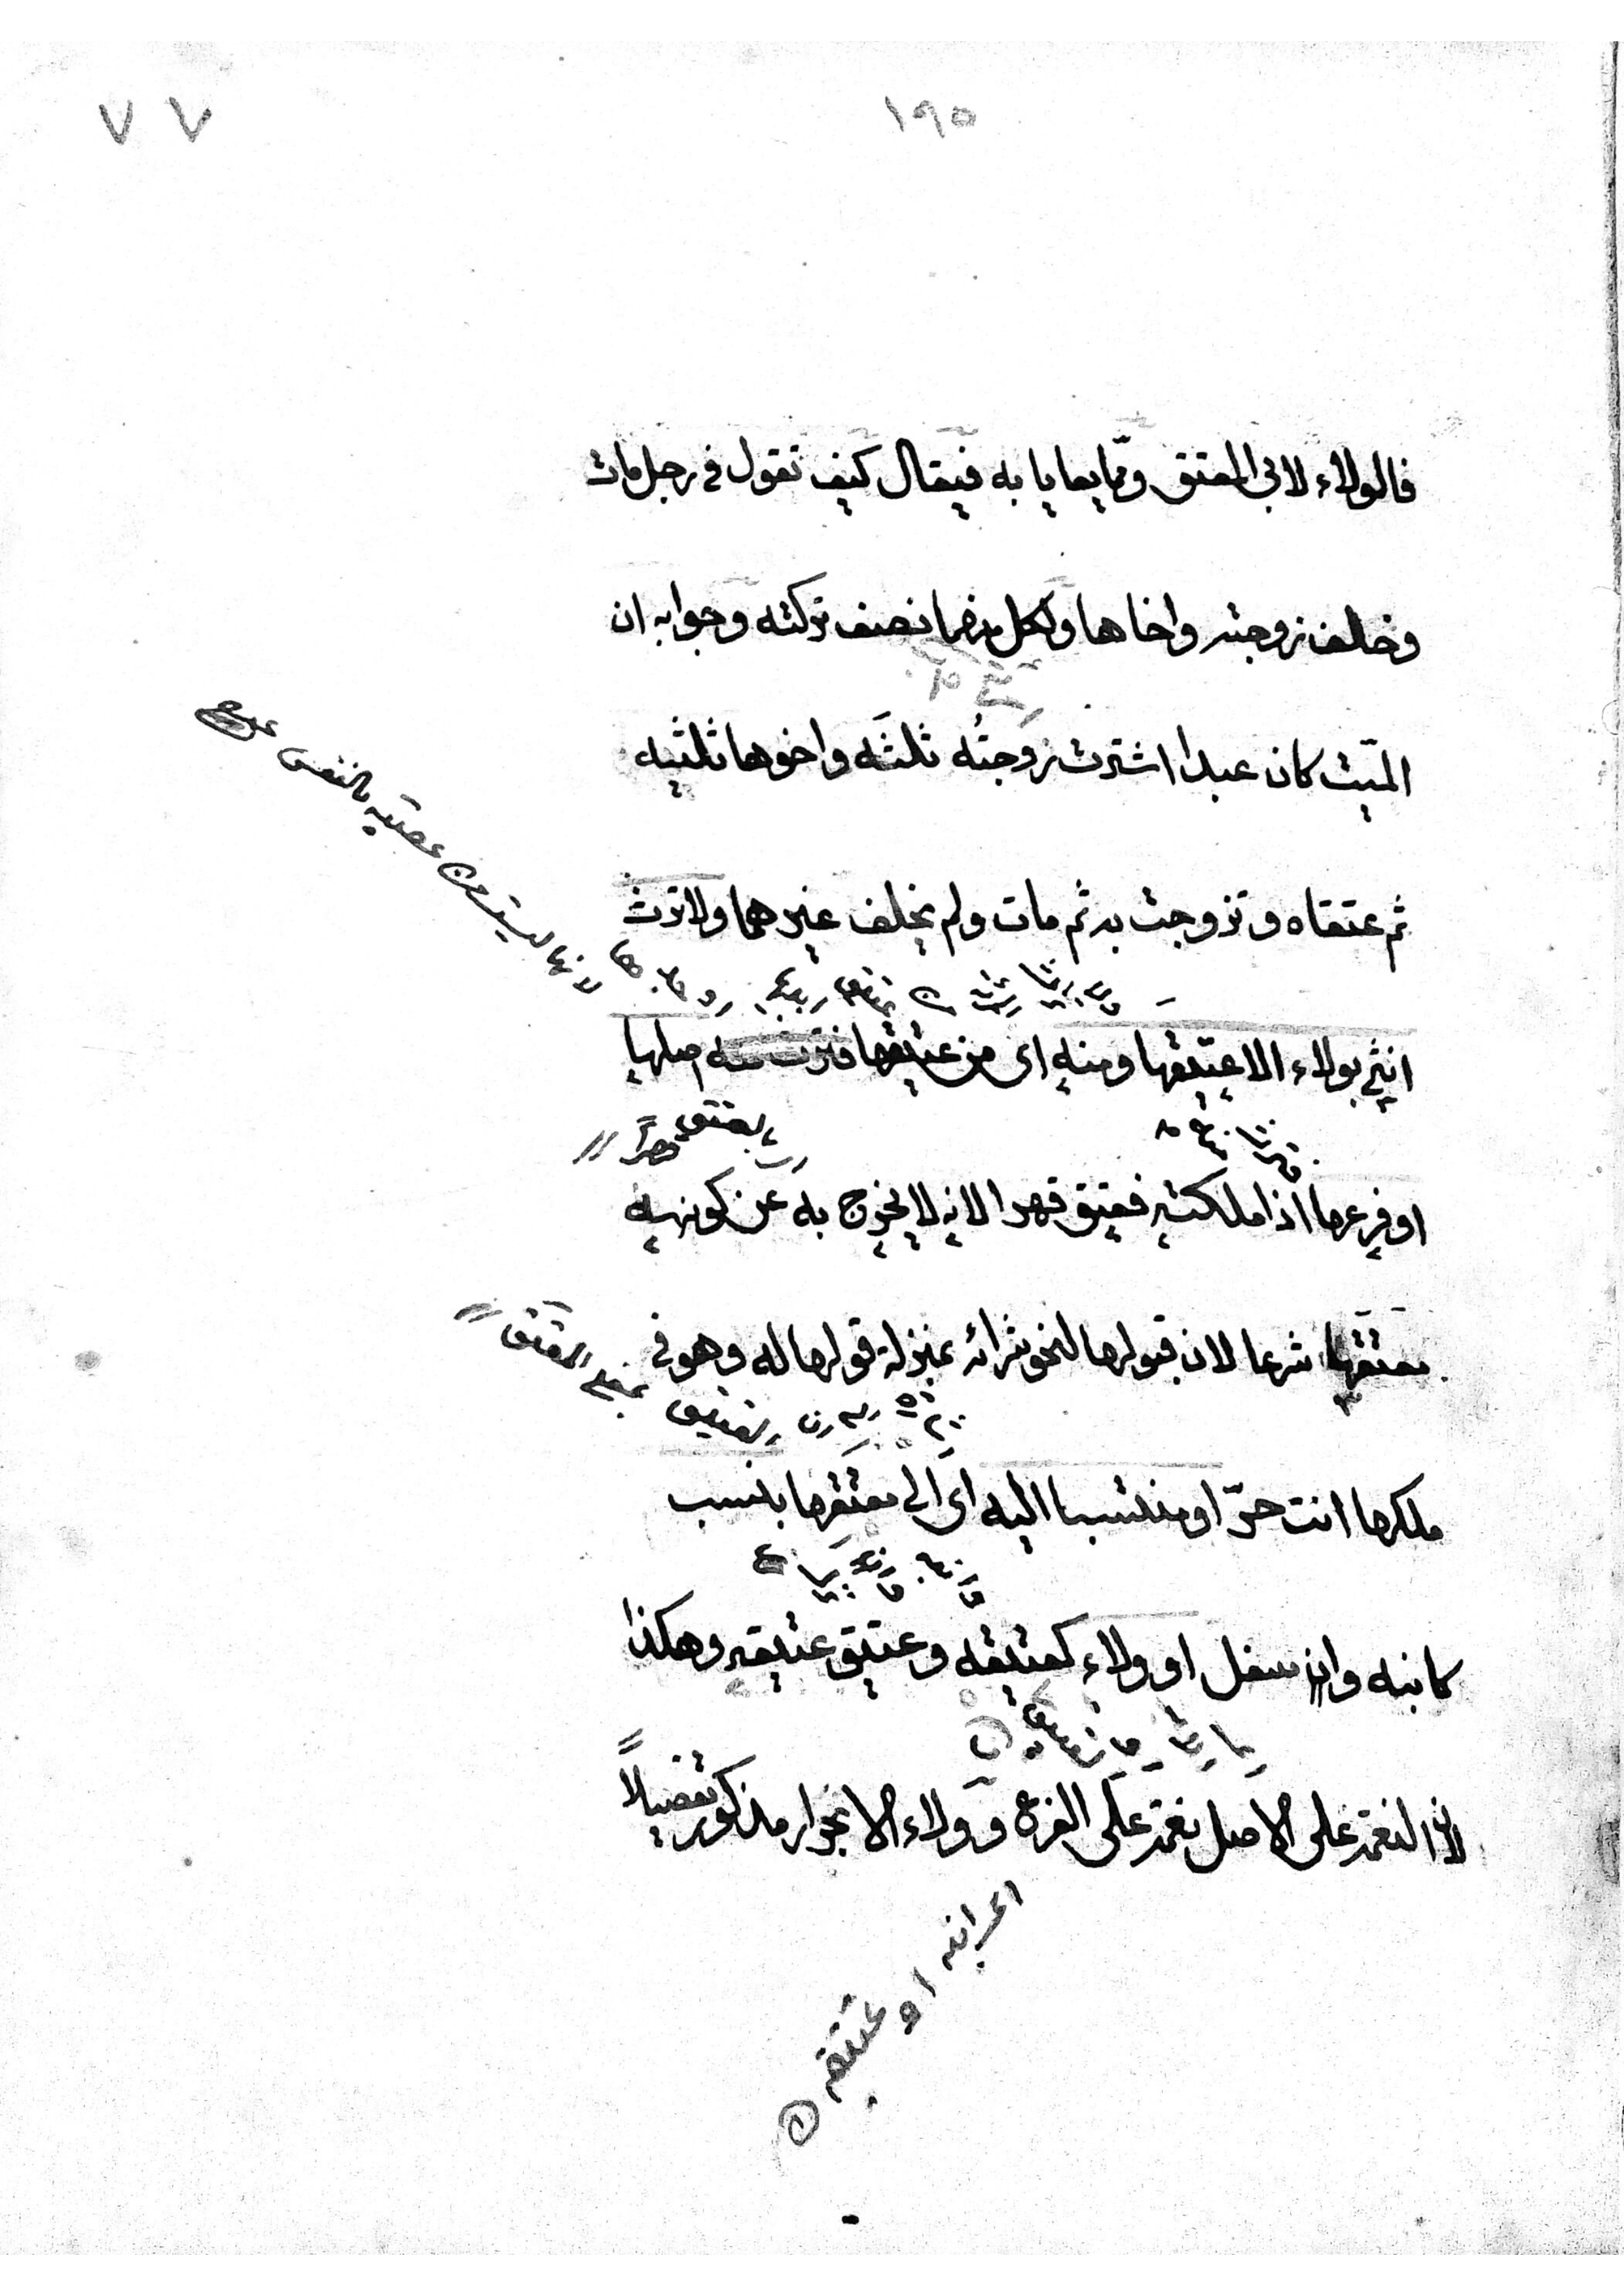 ١٩٥
٧٧
فالولاء لابي المعتق ومما يعايا به فيقال كيف تقول في رجل مات
وخلف زوجته واخاها ولكل منهما نصف تركته وجوابه ان
الميّت كان عبدا اشترت زوجتُه ثلثَه واخوها ثلثيه
ثم عتقاه وتزوجت به ثم مات ولم يخلف غيرهما ولا ترث
لانها ليست عصبة بالنفس
انثى بولاء الا عتيقها ومنه اى من عتيقها فترث منه اصلها
او فرعها اذا ملكته فعتق قهرا لانه لا يخرج به عن كونه
معتقها شرعا لان قبولها لنحو شرائه بمنزلة قولها له وهو في
بمعنى المعتق
ملكها انت حرّ او منتسبا اليه اى الى معتقها بنسب
كابنه وان سفل او ولاء كعتيقه وعتيق عتيقه وهكذا
لان النعمة على الاصل نعمة على الفرع وولاء الانجرار مذكور تفصيلاً
اى ابنه او عتيقه